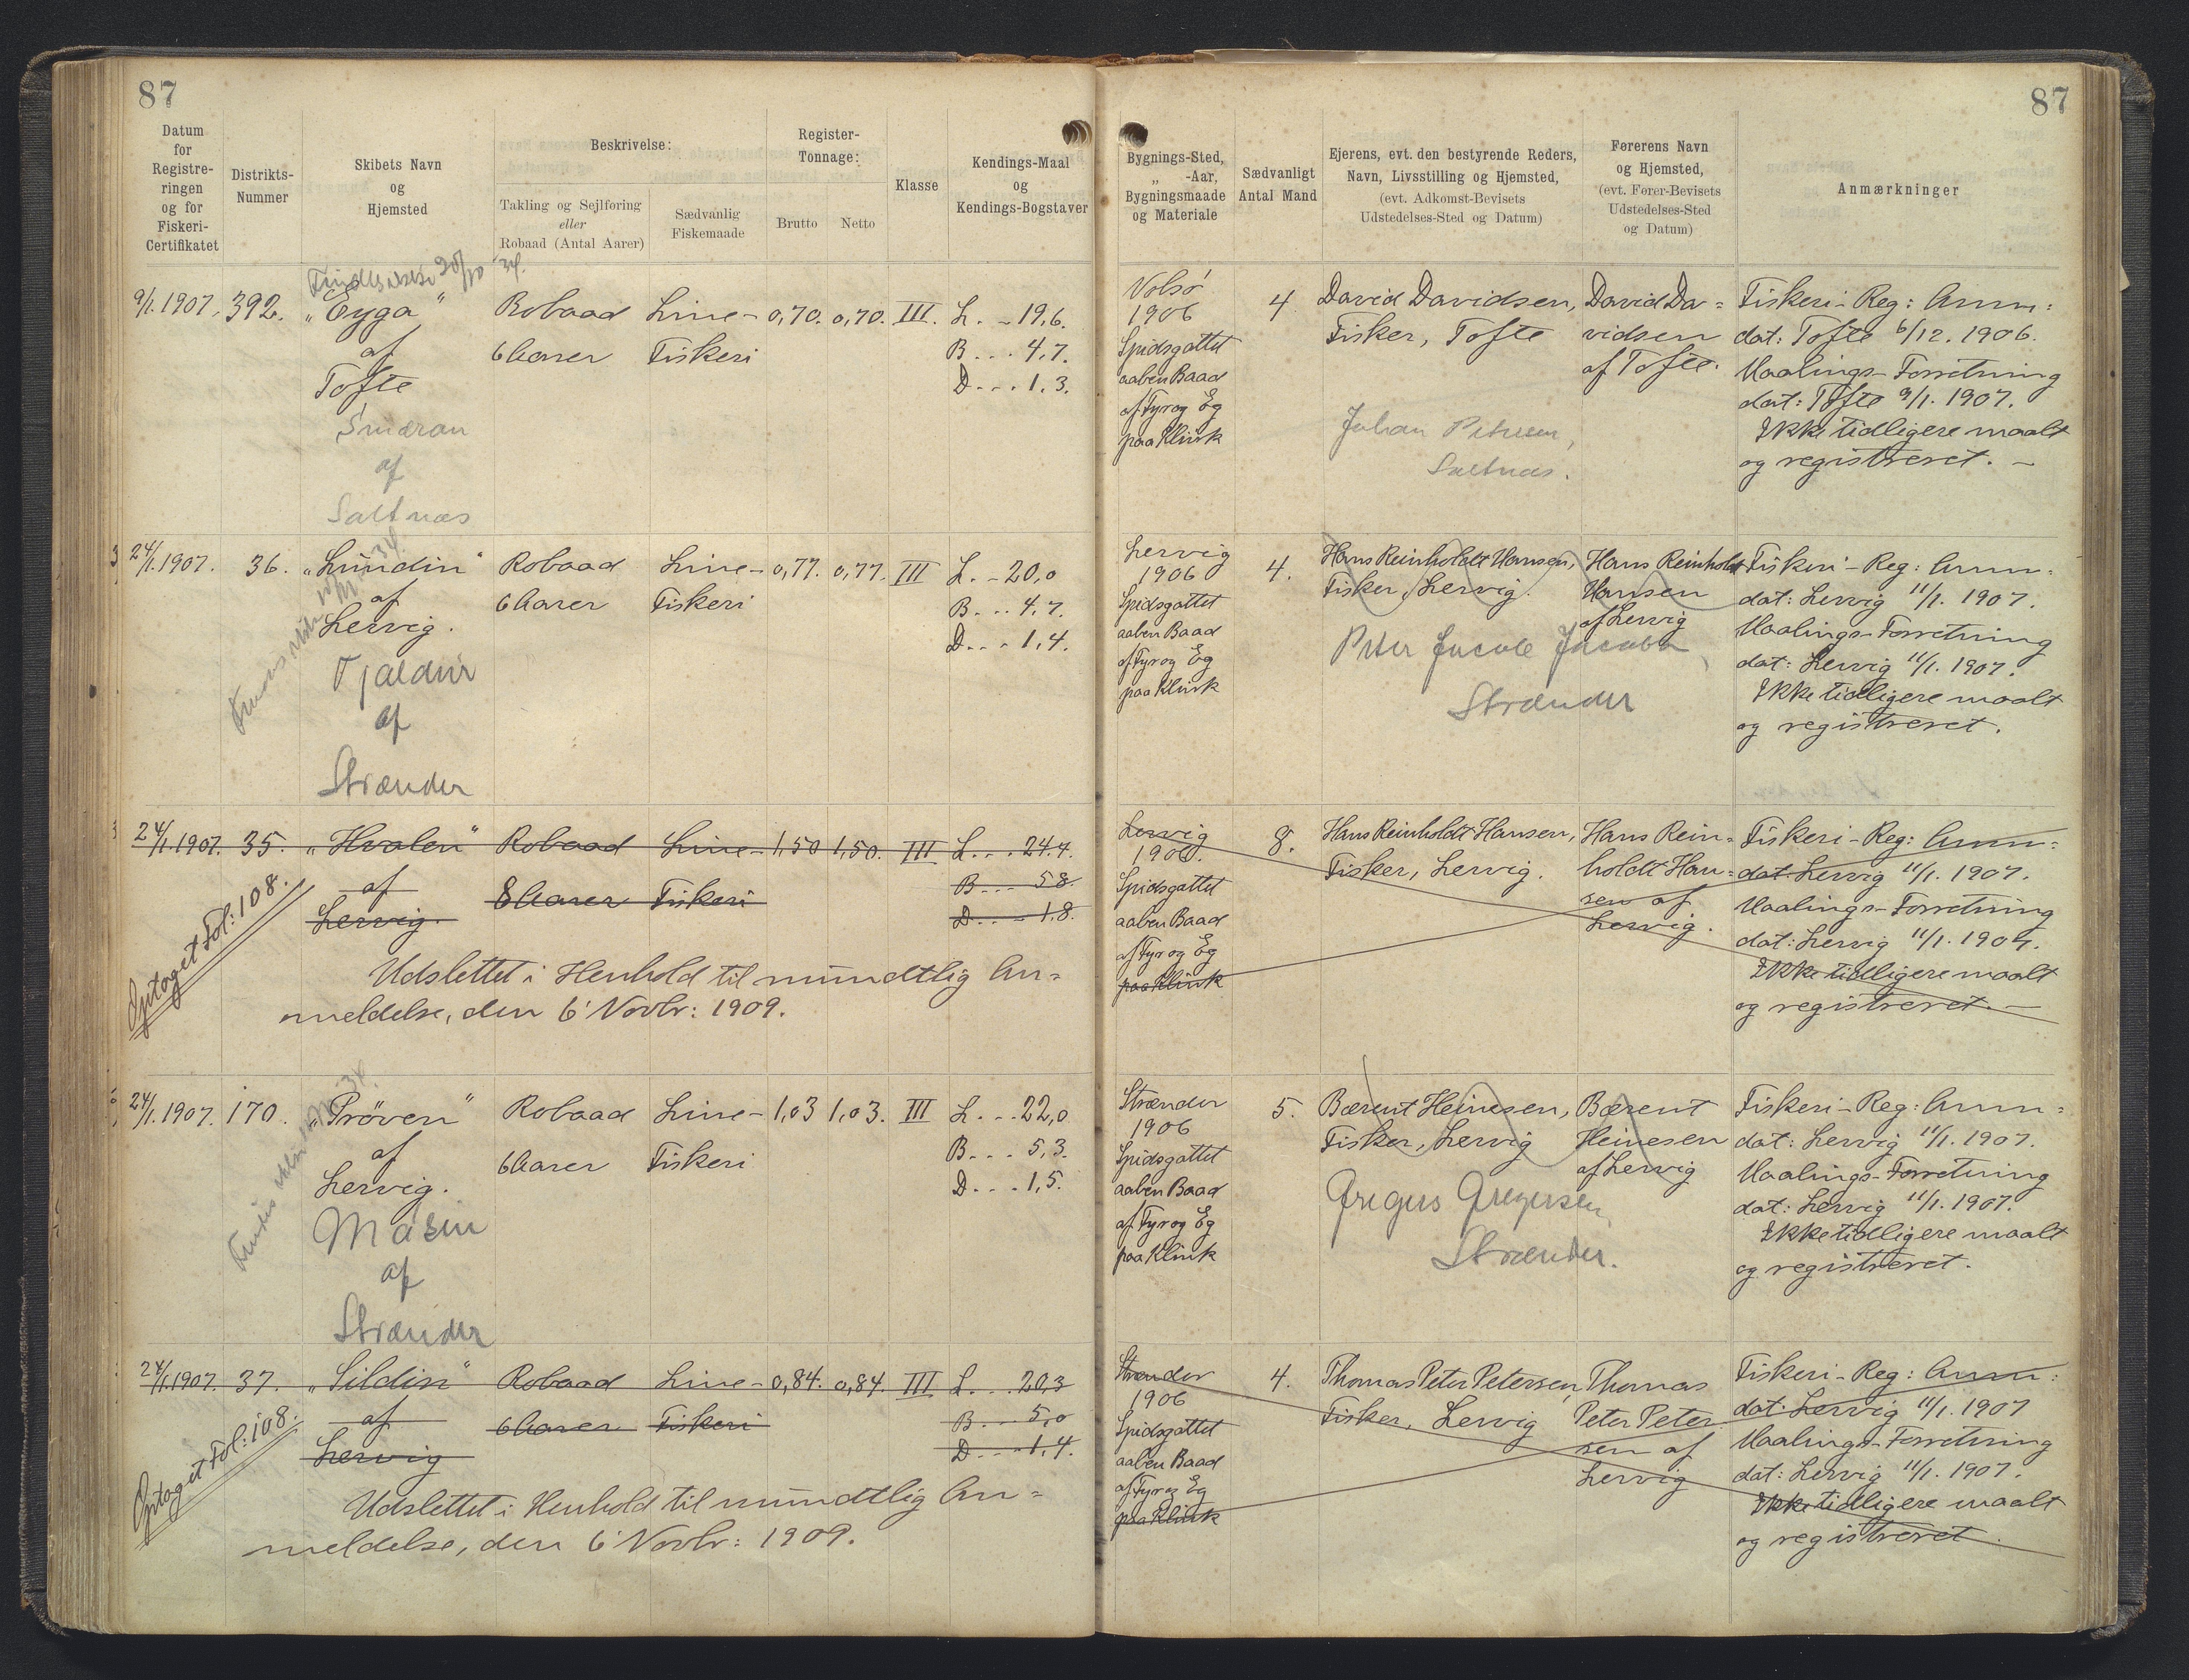 87
87
Datum
for
Registre-
ringen
og for
Fiskeri-
Certifikatet
Distrikts-
Nummer
Skibets Navn
og
Hjemsted
Beskrivelse:
Takling og Sejlføring
eller
Robaad (Antal Aarer)
Sædvanlig
Fiskemaade
Register-
Tonnage:
Brutto
Netto
Klasse
Kendings-Maal
og
Kendings-Bogstaver
Bygnings-Sted,
„ -Aar,
Bygningsmaade
og Materiale
Sædvanligt
Antal Mand
Ejerens, evt. den bestyrende Reders,
Navn, Livsstilling og Hjemsted,
(evt. Adkomst-Bevisets
Udstedelses-Sted og Datum)
Førerens Navn
og Hjemsted,
(evt. Fører-Bevisets
Udstedelses-Sted
og Datum)
Anmærkninger
9/1. 1907. 392. „Eyga"
af
Tofte
Smæran
af
Saltnæs
Robaad
6 Aarer
Line-
Fiskeri
0,70. 0,70. III. L. - 19,6.
B... 4,7.
D... 1,3.
Volsø
1906
Spidsgattet
aaben Baad
af Fyr og Eg
paa Klink
4
David Davidsen,
Fisker, Tofte
Johan Petersen,
Saltnæs.
David Da=
vidsen
af Tofte.
Fiskeri-Reg: Anm:
dat: Tofte 6/12. 1906.
Maalings-Forretning
dat: Tofte 9/1. 1907.
Ikke tidligere maalt
og registreret. -
24/1. 1907. 36. „Lundin"
af
Lervig.
Tjaldur
af
Strænder
Robaad
6 Aarer
Line-
Fiskeri
0,77. 0,77. III L. - 20,0
B... 4,7.
D... 1,4.
Lervig
1906
Spidsgattet
aaben Baad
af Fyr og Eg
paa Klink
4.
Hans Reinholdt Hansen,
Fisker, Lervig.
Peter Jacob Jacobsen,
Strænder
Hans Reinholdt
Hansen
af Lervig
Fiskeri-Reg: Anm:
dat: Lervig 11/1. 1907.
Maalings-Forretning
dat: Lervig 11/1. 1907.
Ikke tidligere maalt
og registreret.
24/1. 1907. 35. „Hvalen"
af
Lervig.
Optaget Fol: 108.
Robaad
8 Aarer
Line-
Fiskeri
1,50 1,50. III L... 24,4.
B... 5,8.
D... 1,8.
Udslettet i Henhold til mundtlig An=
meldelse, den 6' Novbr: 1909.
Lervig
1906.
Spidsgattet
aaben Baad
af Fyr og Eg
paa Klink
8.
Hans Reinholdt Hansen,
Fisker, Lervig.
Hans Rein=
holdt Han=
sen af
Lervig.
Fiskeri-Reg: Anm:
dat: Lervig 11/1. 1907.
Maalings-Forretning
dat: Lervig 11/1. 1907.
Ikke tidligere maalt
og registreret. -
24/1. 1907. 170. „Prøven"
af
Lervig.
Masin
af
Strænder
Robaad
6 Aarer
Line-
Fiskeri
1,03 1,03. III L... 22,0
B... 5,3.
D... 1,5.
Strænder
1906
Spidsgattet
aaben Baad
af Fyr og Eg
paa Klink
5.
Bærent Heinesen,
Fisker, Lervig
Gregers Gregersen,
Strænder.
Bærent
Heinesen
af Lervig
Fiskeri-Reg: Anm:
dat: Lervig 11/1. 1907.
Maalings-Forretning
dat: Lervig 11/1. 1907.
Ikke tidligere maalt
og registreret.
24/1. 1907. 37. „Sildin"
af
Lervig
Optaget Fol: 108.
Robaad
6 Aarer
Line-
Fiskeri
0,84. 0,84. III L... 20,3
B... 5,0
D... 1,4.
Udslettet i Henhold til mundtlig An=
meldelse, den 6' Novbr: 1909.
Strænder
1906
Spidsgattet
aaben Baad
af Fyr og Eg
paa Klink
4.
Thomas Peter Petersen,
Fisker, Lervig
Thomas
Peter Peter
sen af
Lervig
Fiskeri-Reg: Anm:
dat: Lervig 11/1. 1907
Maalings-Forretning
dat: Lervig 11/1. 1907.
Ikke tidligere maalt
og registreret.